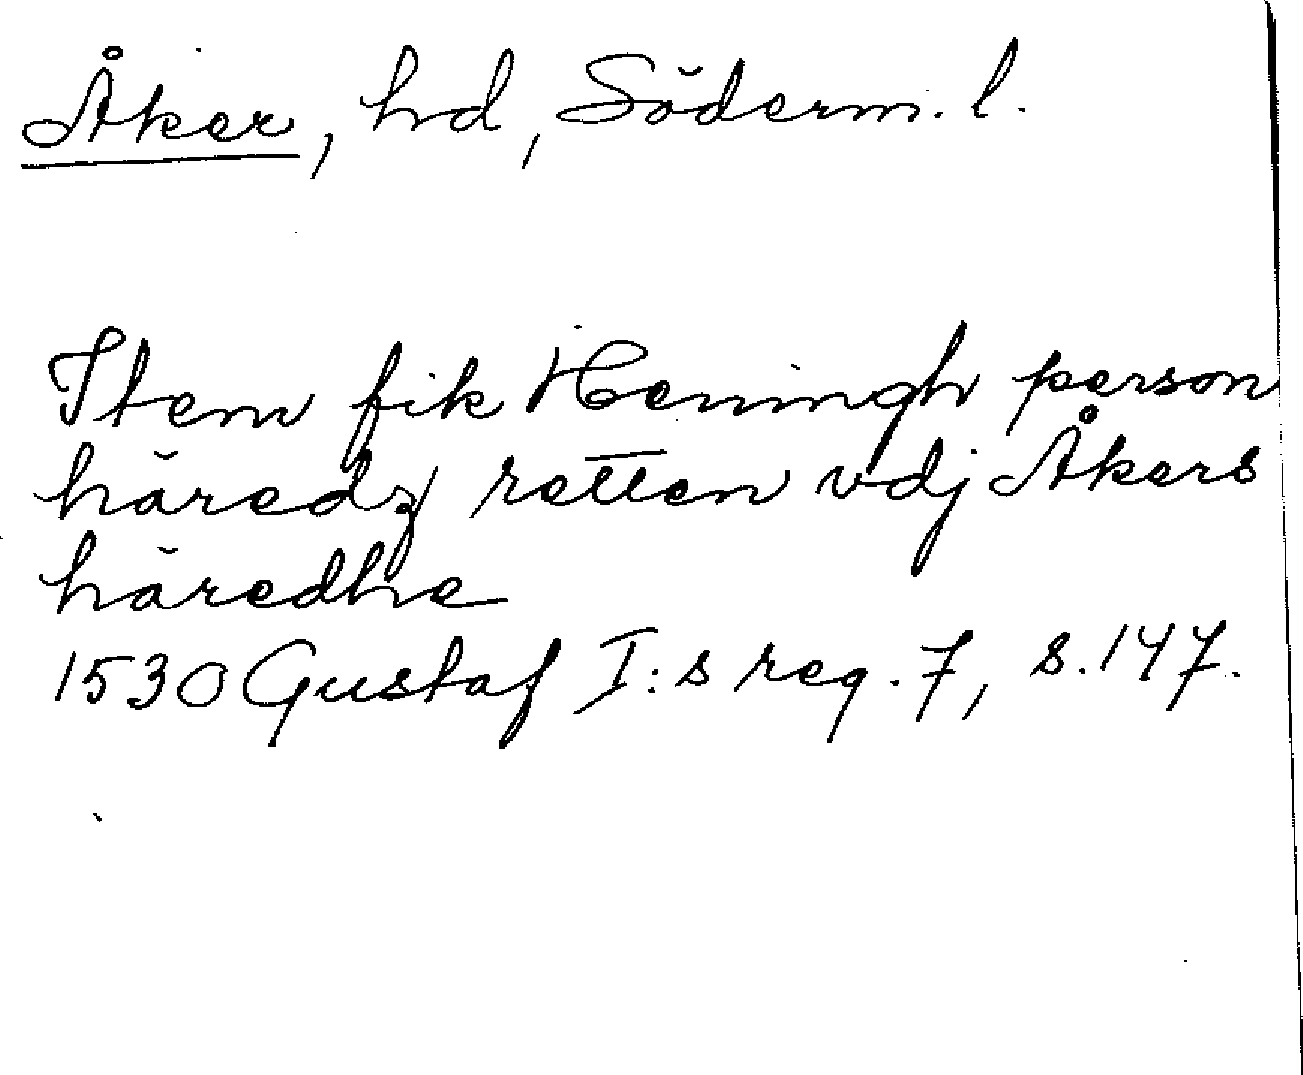 Åker, hd, Söderm. l.
Item fik Heningh person
häredz retten vdj Åkers
häredhe
1530 Gustaf I:s reg. 7, s. 147.